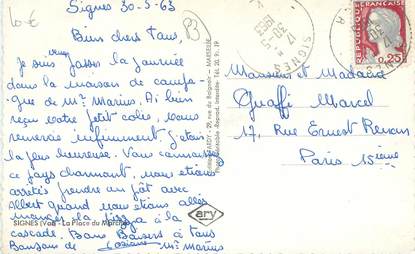 10 €
Signes 30-5-63
Bien chers tous,
Je suis venue passer la journée
dans la maison de campa-
gne de Mr Marius. Ai bien
reçu votre petit colis, vous
remercie infiniment j'étais
la plus heureuse. Vous connaissez
ce pays charmant, nous etions
arrêtés prendre un pôt avec
Albert quand nous étions allés
manger la pizza à la
cascade. Bons Baisers à tous
Bonjour de Mr Marius
SIGNES (Var) - La Place du Marché
ary
MARSEILLE
SIGNES
30-5
1963
REPUBLIQUE FRANÇAISE
0,25
Monsieur et Madame
Graffi Marcel
17, Rue Ernest Renan
Paris 15ème